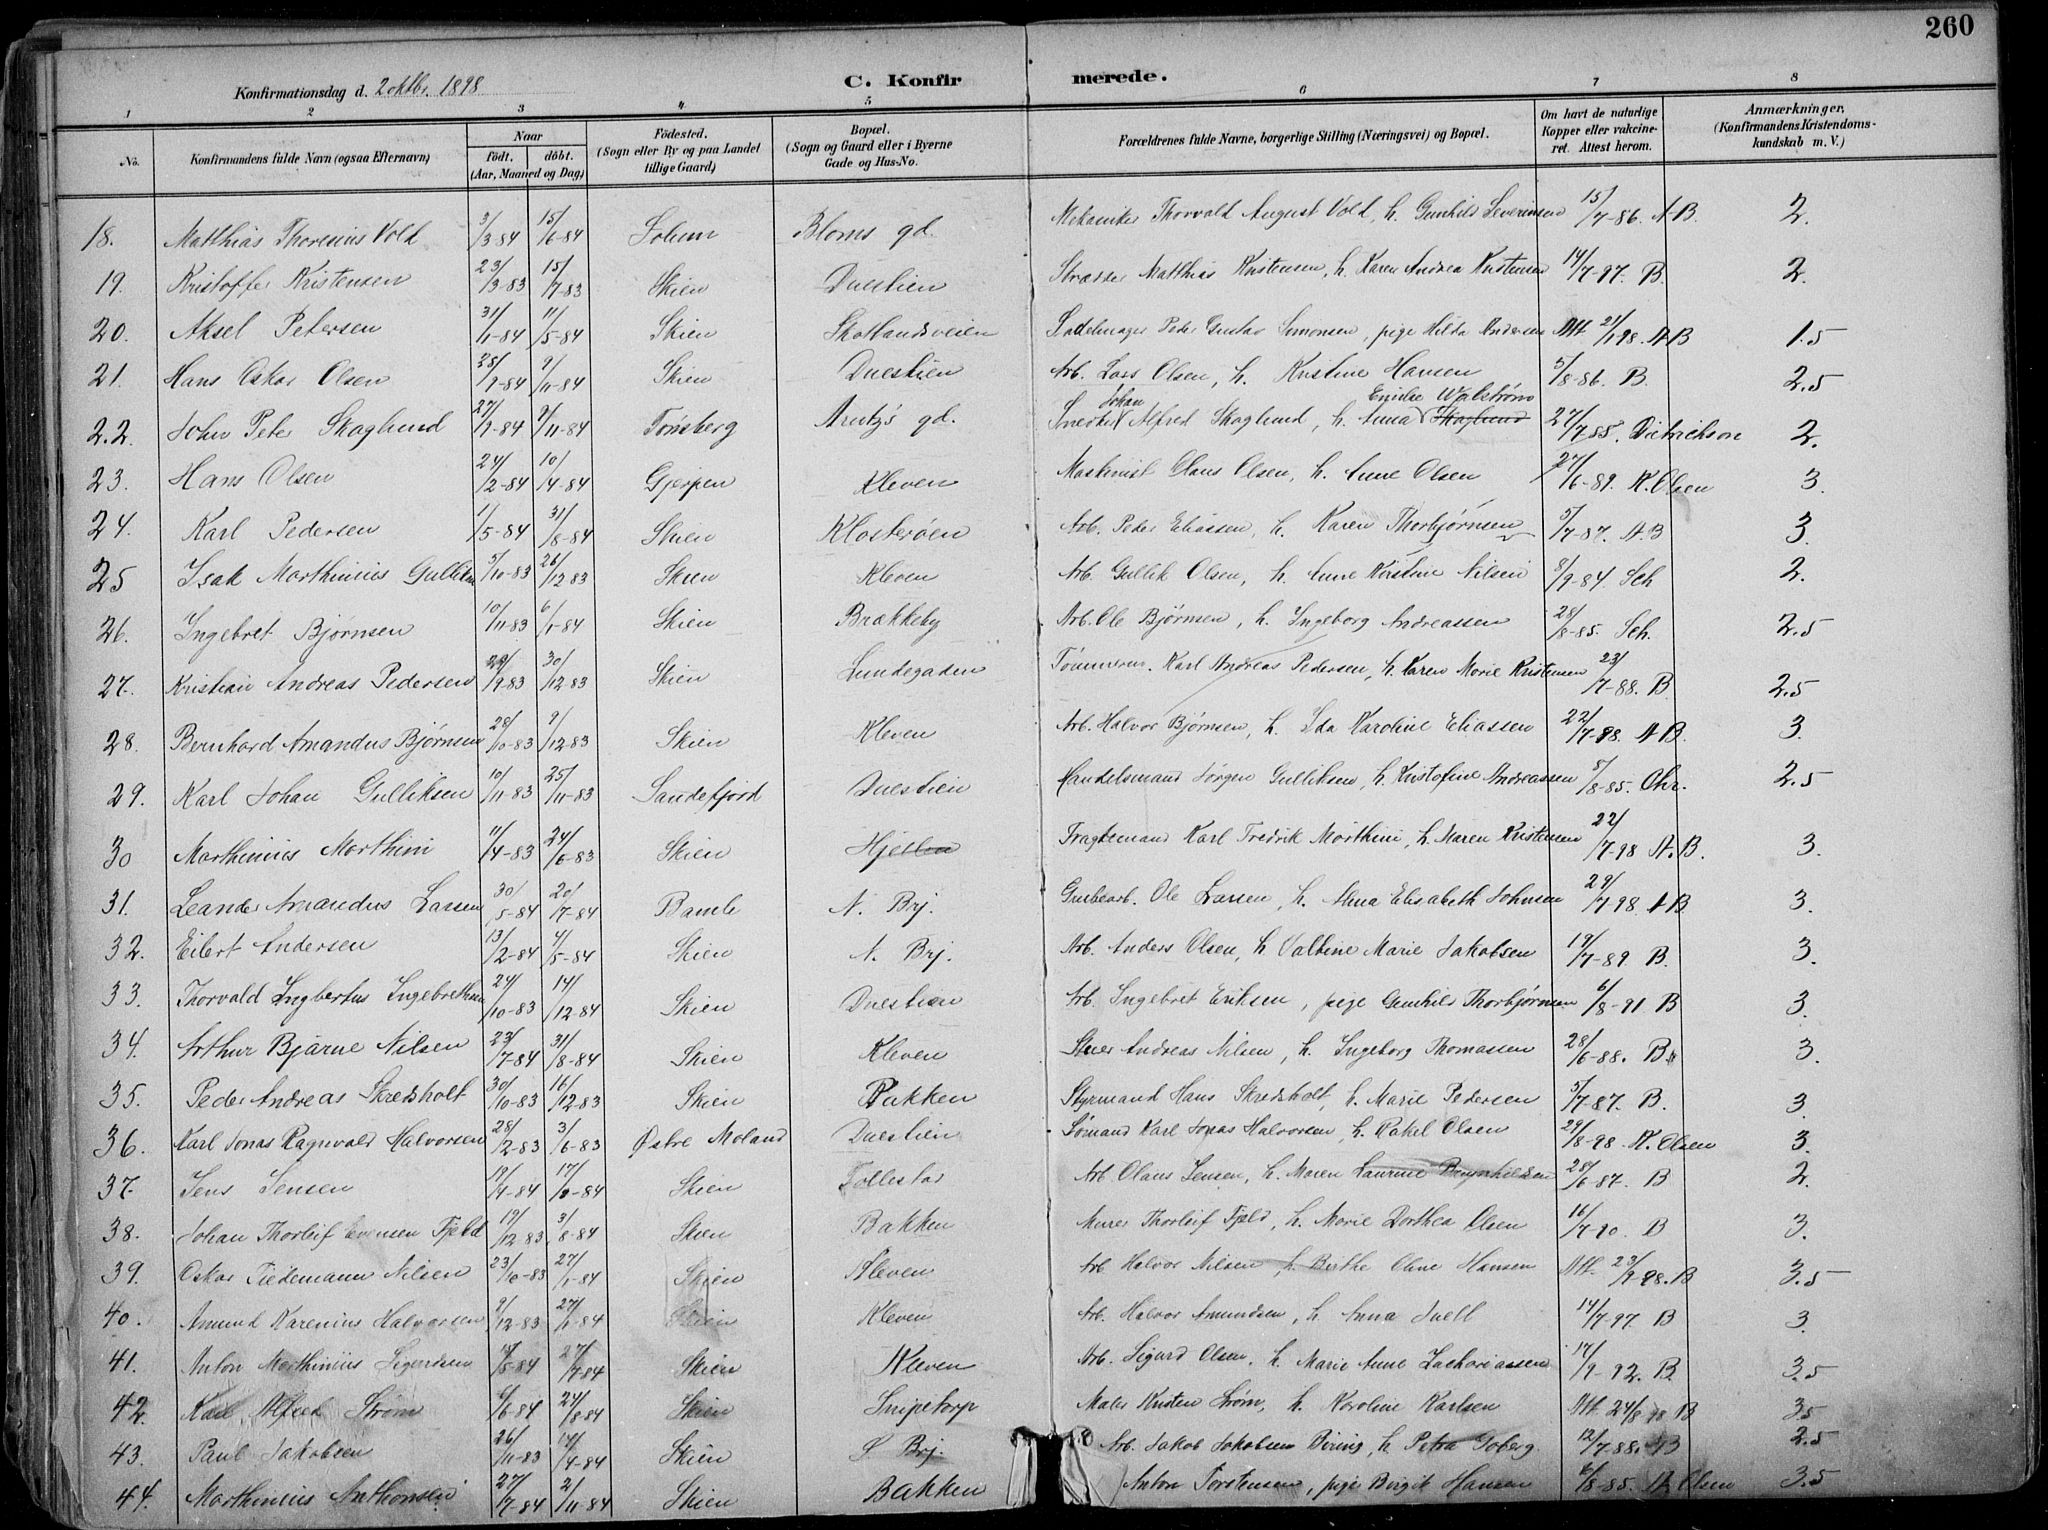 260
Konfirmationsdag d. 2 oktbr. 1898
C. Konfirmerede.
1 2 3 4 5 6 7 8
No. Konfirmandens fulde Navn (ogsaa Efternavn) Naar födt. döbt. (Aar, Maaned og Dag) Födested. (Sogn eller By og paa Landet tillige Gaard) Bopæl. (Sogn og Gaard eller i Byerne Gade og Hus-No. Forældrenes fulde Navne, borgerlige Stilling (Næringsvei) og Bopæl. Om havt de naturlige Kopper eller vakcineret. Attest herom. Anmærkninger. (Konfirmandens Kristendomskundskab m. V.)
18. Matthias Thoresius Vold 3/3-84 15/6-84 Solum Bloms gd. Mekaniker Thorvald August Vold, h. Gunhild Severinsen 15/7-86. AB. 2.
19. Kristoffer Kristensen 23/3-83 15/7-83 Skien Duestien Matthias Kristensen, h. Karen Andrea Kristensen 14/7-97. B. 2.
20. Aksel Petersen 31/1-84 11/5-84 Skien Skotlandsveien Sadelmager Peder Gustav Simonsen, pige Hilda Andersen Att 21/1 98. AB 1.5
21. Hans Oskar Olsen 28/9-84 9/11-84 Skien Duestien Arb. Lars Olsen, h. Kristine Hansen 5/8-86. B. 2.5
22. John Peter Skoglund 27/9-84 9/11-84 Tønsberg Arntzs gd. Snedker Johan Alfred Skoglund, h. Anna Emilie Walstrøm 27/7 85. Dietrichson 2.
23. Hans Olsen 24/2-84 10/4-84 Gjerpen Kleven Maskinist Claus Olsen, h. Anne Olsen 27/6-89. K. Olsen 3.
24. Karl Pedersen 1/5-84 31/8-84 Skien Klosterøen Arb. Peder Eliassen, h. Karen Thorbjørnsen 5/7-87. AB 3.
25 Isak Marthinius Gulliksen 5/10-83 26/12-83 Skien Kleven Arb. Gullik Olsen, h. Anne Kirstine Nilsen 8/9-84 Sch 2.
26. Ingebret Bjørnsen 10/11-83 6/1-84 Skien Brækkeby Arb. Ole Bjørnsen, h. Ingeborg Andreassen 28/8-85. Sch. 2.5
27. Kristian Andreas Pedersen 29/9-83 30/12-83 Skien Lundegaden Tømmerm. Karl Andreas Pedersen, h. Karen Marie Kristensen 23/7-88. B. 2.5
28. Bernhard Amandus Bjørnsen 28/10-83 9/12-83 Skien Kleven Arb. Halvor Bjørnsen, h. Ida Karoline Eliassen 22/7-98. AB. 3.
29. Karl Johan Gulliksen 10/11-83 25/11-83 Sandefjord Duestien Handelsmand Jørgen Gulliksen, h. Kristofine Andreassen 5/8-85. Chr. 2.5
30 Marthinius Marthini 11/4-83 24/6-83 Skien Hjellen Fragtemand Karl Fredrik Marthini, h. Maren Kristensen 22/7-98 A.B. 3.
31. Leander Amandus Larsen 30/5-84 20/7-84 Bamle N. Brj. Grubearb. Ole Larsen, h. Anna Elisabeth Johnsen 29/1 98. AB 3.
32. Eilert Andersen 13/2-84 4/5-84 Skien N. Brj. Arb. Anders Olsen, h. Valbine Marie Jakobsen 19/7-89. B. 3.
33. Thorvald Ingbertus Ingebretsen 24/10-83 14/12-84 Skien Duestien Arb. Ingebret Eriksen, pige Gunhild Thorbjørnsen 6/8-91 B 3.
34. Arthur Bjarne Nilsen 23/7-84 31/8-84 Skien Kleven Andreas Nilsen, h. Ingeborg Thomassen 28/6-88. B 3.
35. Peder Andreas Skredsholt 30/10-83 16/12-83 Skien Bakken Styrmand Hans Skredsholt, h. Marie Pedersen 5/7-87. B. 3.
36. Karl Jonas Ragnvald Halvorsen 28/2-83 3/6-83 Østre Moland Duestien Sømand Karl Jonas Halvorsen, h. Rakel Olsen 29/8-98. K. Olsen 3.
37. Jens Jensen 19/4-84 17/-84 Skien Follestad Arb. Olaus Jensen, h. Maren Laurine Brynhildsen 28/6-87. B 2.
38. Johan Thorleif Evensen Fjeld 19/12-83 3/8-84 Skien Bakken Murer Thorleif Fjeld, h. Marie Dorthea Olsen 16/7-90. B 3.
39. Oskar Tidemann Nilsen 23/10-83 27/1-84 Skien Kleven Arb Halvor Nilsen, h. Birthe Oline Hansen Att. 23/9-98. B 3.5
40. Amund Karenius Halvorsen 9/12-83 27/1-84 Skien Kleven Arb. Halvor Amundsen, h. Anna Juell 14/7-97. B 3.
41. Anton Marthinius Sigurdsen /5-84 27/7-84 Skien Kleven Arb. Sigurd Olsen, h. Marie Anne Zachariassen 17/9-92. B. 3.5
42. Karl Alfred Strøm 6/6-84 24/8-84 Skien Snipetorp Maler Kristen Strøm, h. Karoline Karlsen Att 24/8 98 B 3.5
43. Paul Jakobsen 26/11-83 14/4-84 Skien S. Brj. Arb. Jakob Jakobsen, h. Petra Goberg. 12/7-88. B 2.5
44. Marthinius Anthonsen 27/7-84 2/11-84 Skien Bakken Anton Torstensen, pige Birgit Hansen 6/8-85. K. Olsen 3.5